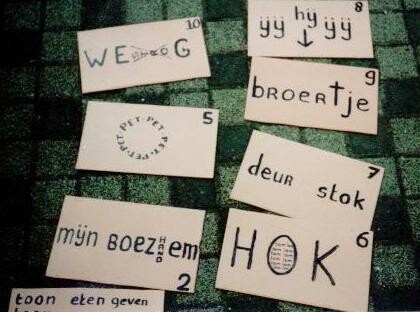 10
WE G
8
hÿ
ÿÿ ÿÿ
9
BROERTje
5
PET·PET·PET·PET·PET·PET·PET
7
deuR stok
mÿn BOEZ HAND em
2
6
HOK
toon eten geven